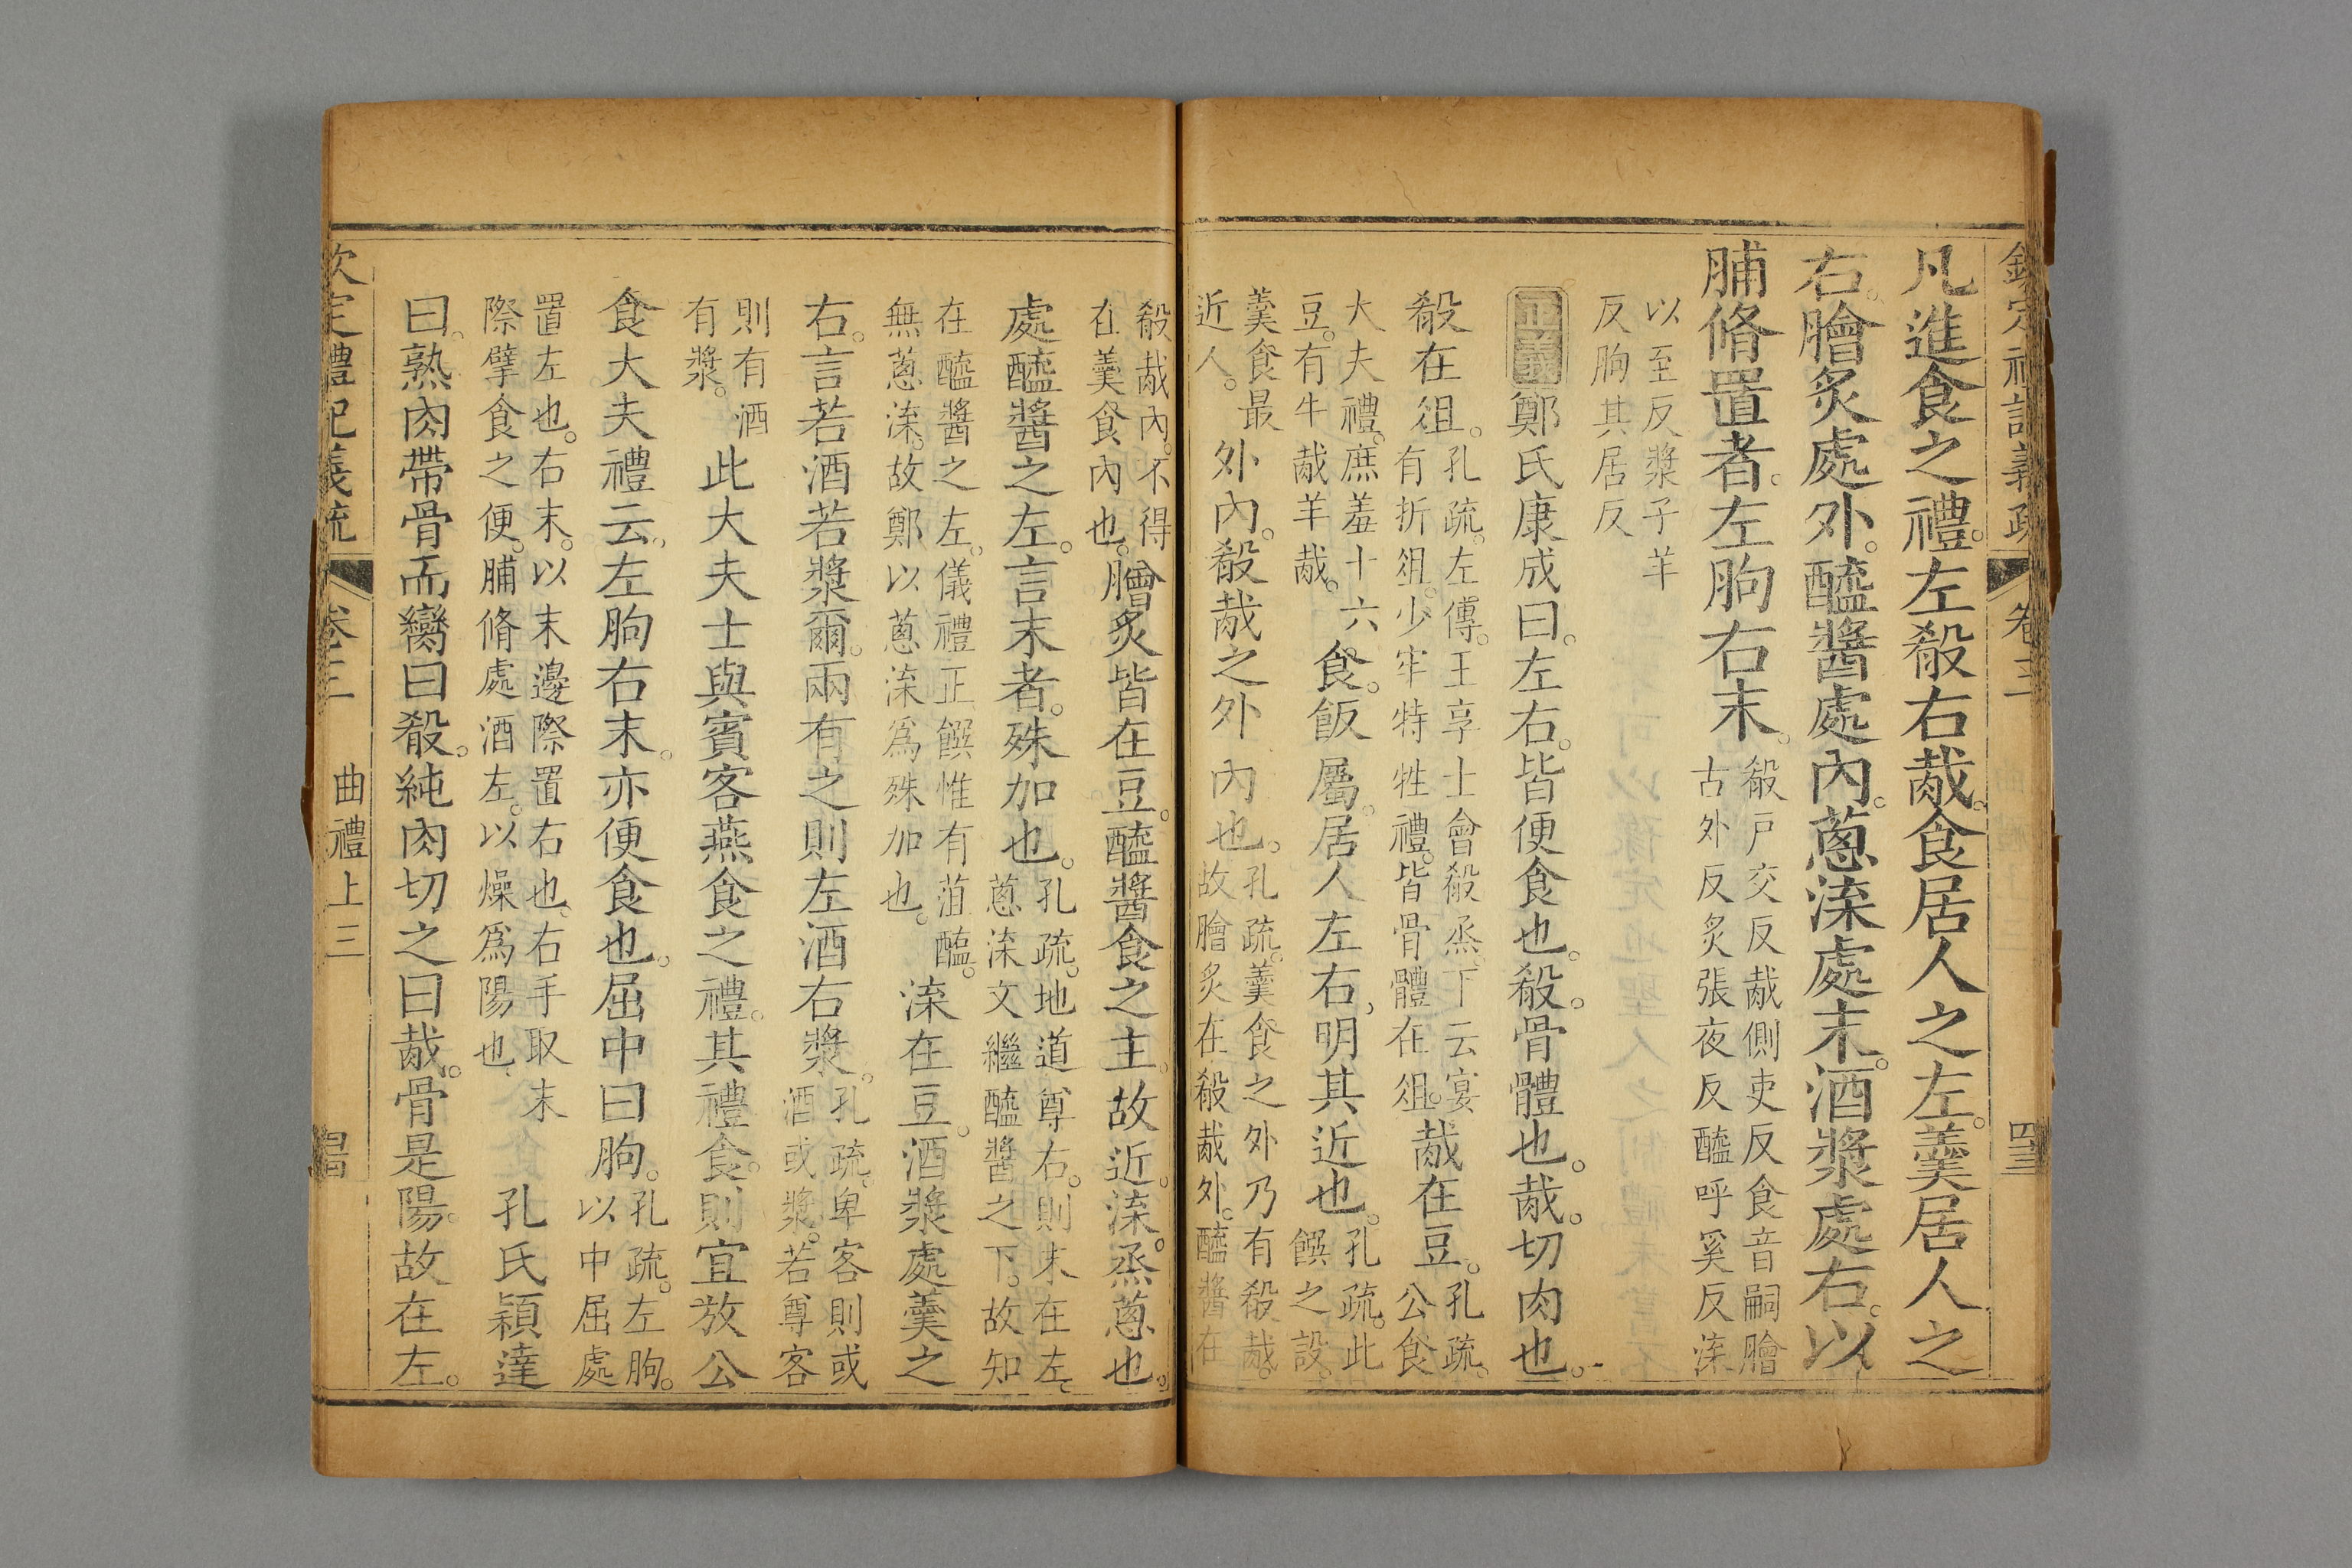 欽定禮記義疏 卷三 四三
凡進食之禮。左殽右胾。食居人之左。羹居人之
右。膾炙處外。醯醬處內。蔥渫處末。酒漿處右。以
脯脩置者。左朐右末。
殽戶交反胾側吏反食音嗣膾
古外反炙張夜反醯呼奚反渫
以至反漿子羊
反朐其居反
正義 鄭氏康成曰。左右。皆便食也。殽。骨體也。胾。切肉也。
殽在俎。
孔疏。左傳。王享士會殽烝。下云宴
有折俎。少牢特牲禮。皆骨體在俎。
胾在豆。
孔疏。
公食
大夫禮。庶羞十六
豆。有牛胾羊胾。
食。飯屬。居人左右。明其近也。
孔疏。此
饌之設。
羹食最
近人。
外內。殽胾之外內也。
孔疏。羹食之外乃有殽胾。
故膾炙在殽胾外。醯醬在
殽胾內。不得
在羹食內也。
膾炙皆在豆。醯醬食之主。故近。渫。烝蔥也。
處醯醬之左。言末者。殊加也。
孔疏。地道尊右。則末在左。
蔥渫文繼醯醬之下。故知
在醯醬之左。儀禮正饌惟有菹醢。
無蔥渫。故鄭以蔥渫爲殊加也。
渫在豆。酒漿處羹之
右。言若酒若漿爾。兩有之則左酒右漿。
孔疏。卑客則或
酒或漿。若尊客
則有酒
有漿。
此大夫士與賓客燕食之禮。其禮食。則宜放公
食大夫禮云。左朐右末。亦便食也。屈中曰朐。
孔疏。左朐。
以中屈處
置左也。右末。以末邊際置右也。右手取末
際擘食之便。脯脩處酒左。以燥爲陽也。
孔氏穎達
曰。熟肉帶骨而臠曰殽。純肉切之曰胾。骨是陽。故在左。
欽定禮記義疏 卷三 曲禮上三